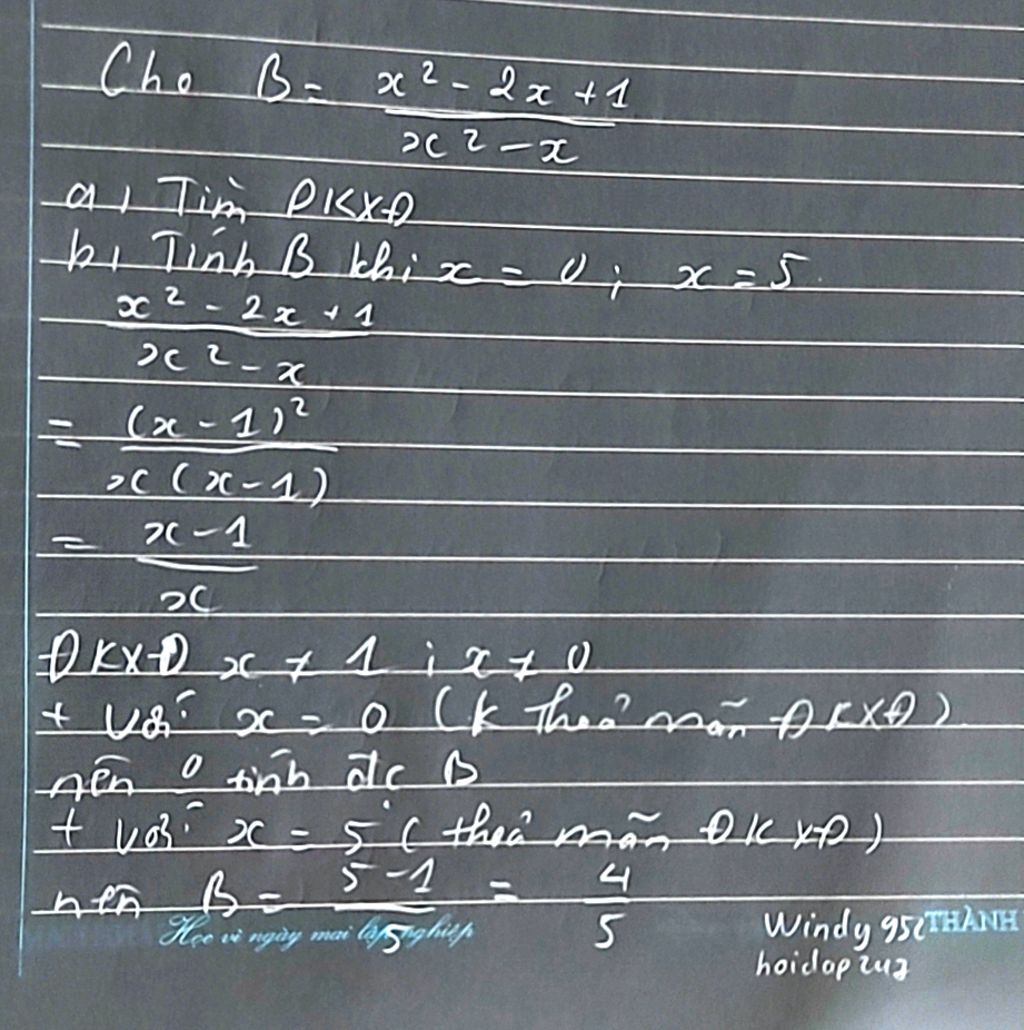 Cho B = x² - 2x + 1
x² - x
a, Tìm ĐKXĐ
b, Tính B khi x = 0 ; x = 5
x² - 2x + 1
x² - x
= (x - 1)²
x (x - 1)
= x - 1
x
ĐKXĐ x ≠ 1 ; x ≠ 0
+ Với x = 0 (K thoả mãn ĐKXĐ)
nên 0 tính đc B
+ Với x = 5 (thoả mãn ĐKXĐ)
nên B = 5 - 1 = 4
5 5
Học vì ngày mai lập nghiệp
THÀNH
Windy 95
hoidap247